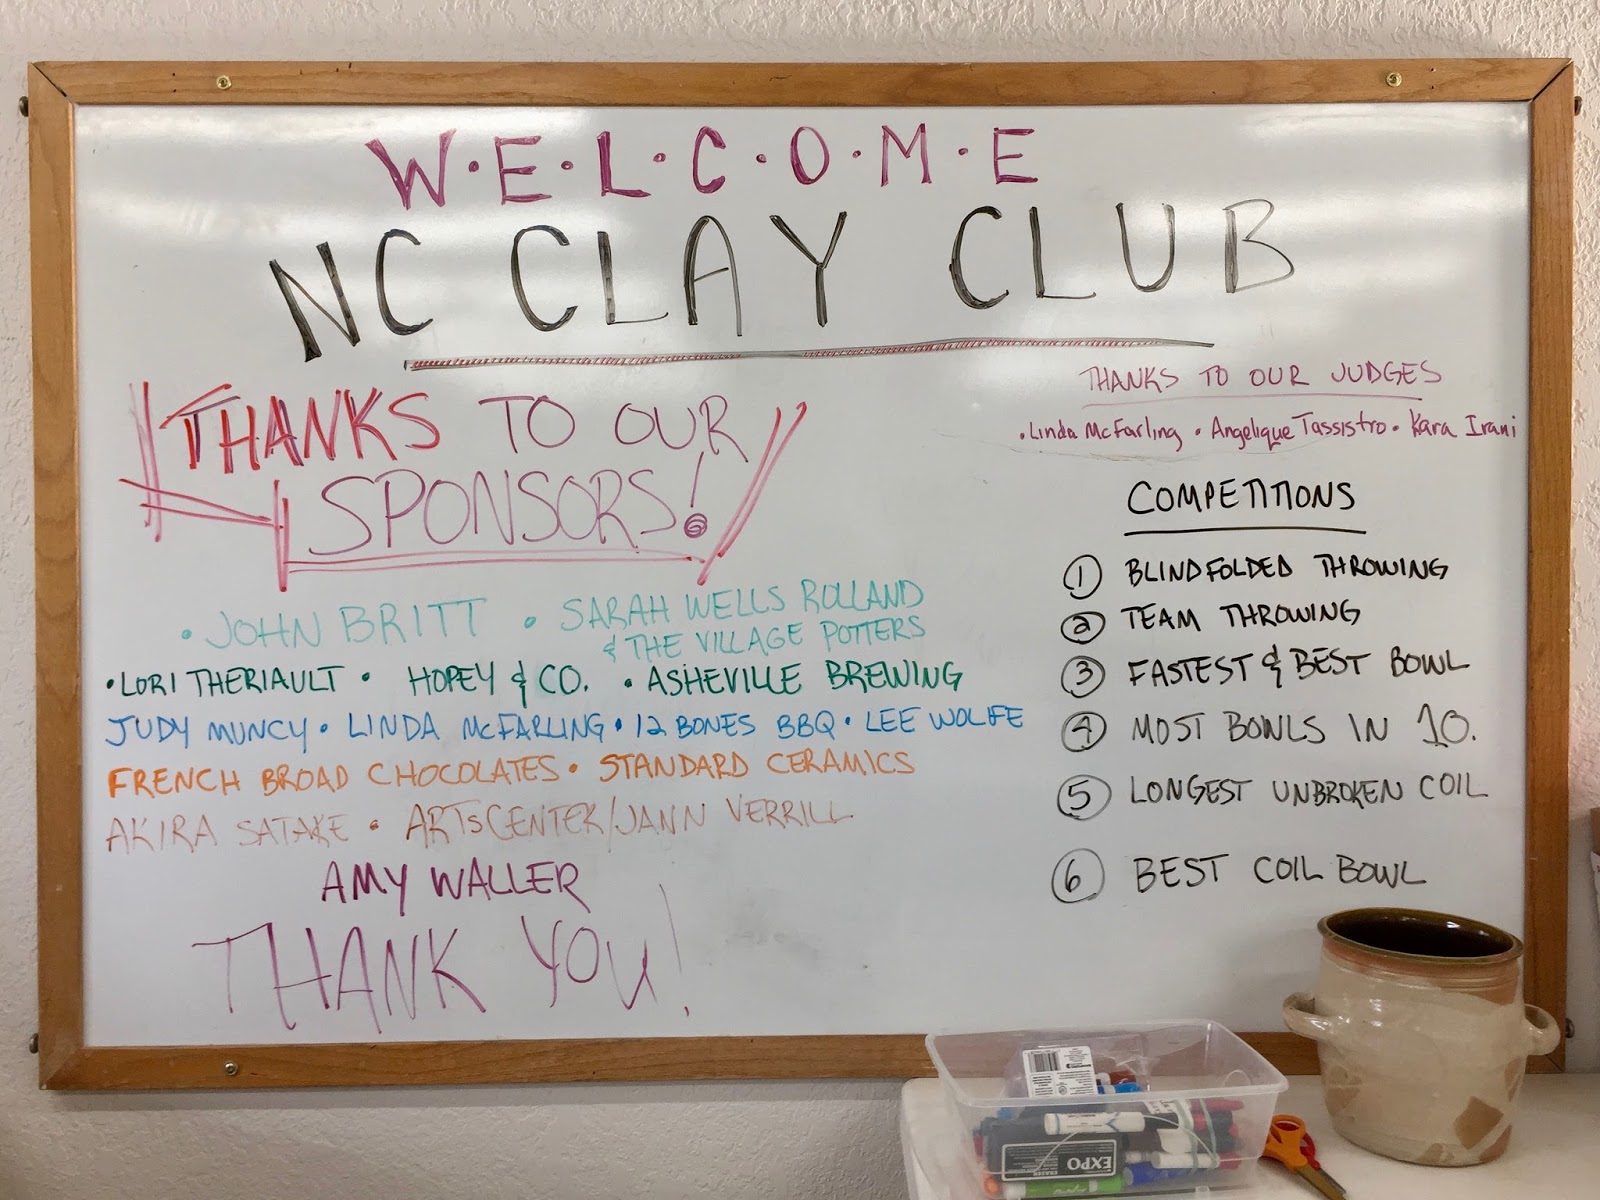 W·E·L·C·O·M·E
NC CLAY CLUB
THANKS TO OUR
SPONSORS!
· JOHN BRITT · SARAH WELLS ROLLAND
& THE VILLAGE POTTERS
· LORI THERIAULT · HOPEY & CO. · ASHEVILLE BREWING
JUDY MUNCY · LINDA McFARLING · 12 BONES BBQ · LEE WOLFE
FRENCH BROAD CHOCOLATES · STANDARD CERAMICS
AKIRA SATAKE · ARTSCENTER/JANN VERRILL
AMY WALLER
THANK YOU!
THANKS TO OUR JUDGES
· Linda McFarling · Angelique Tassistro · Kara Irani
COMPETITIONS
① BLINDFOLDED THROWING
② TEAM THROWING
③ FASTEST & BEST BOWL
④ MOST BOWLS IN 10.
⑤ LONGEST UNBROKEN COIL
⑥ BEST COIL BOWL
EXPO